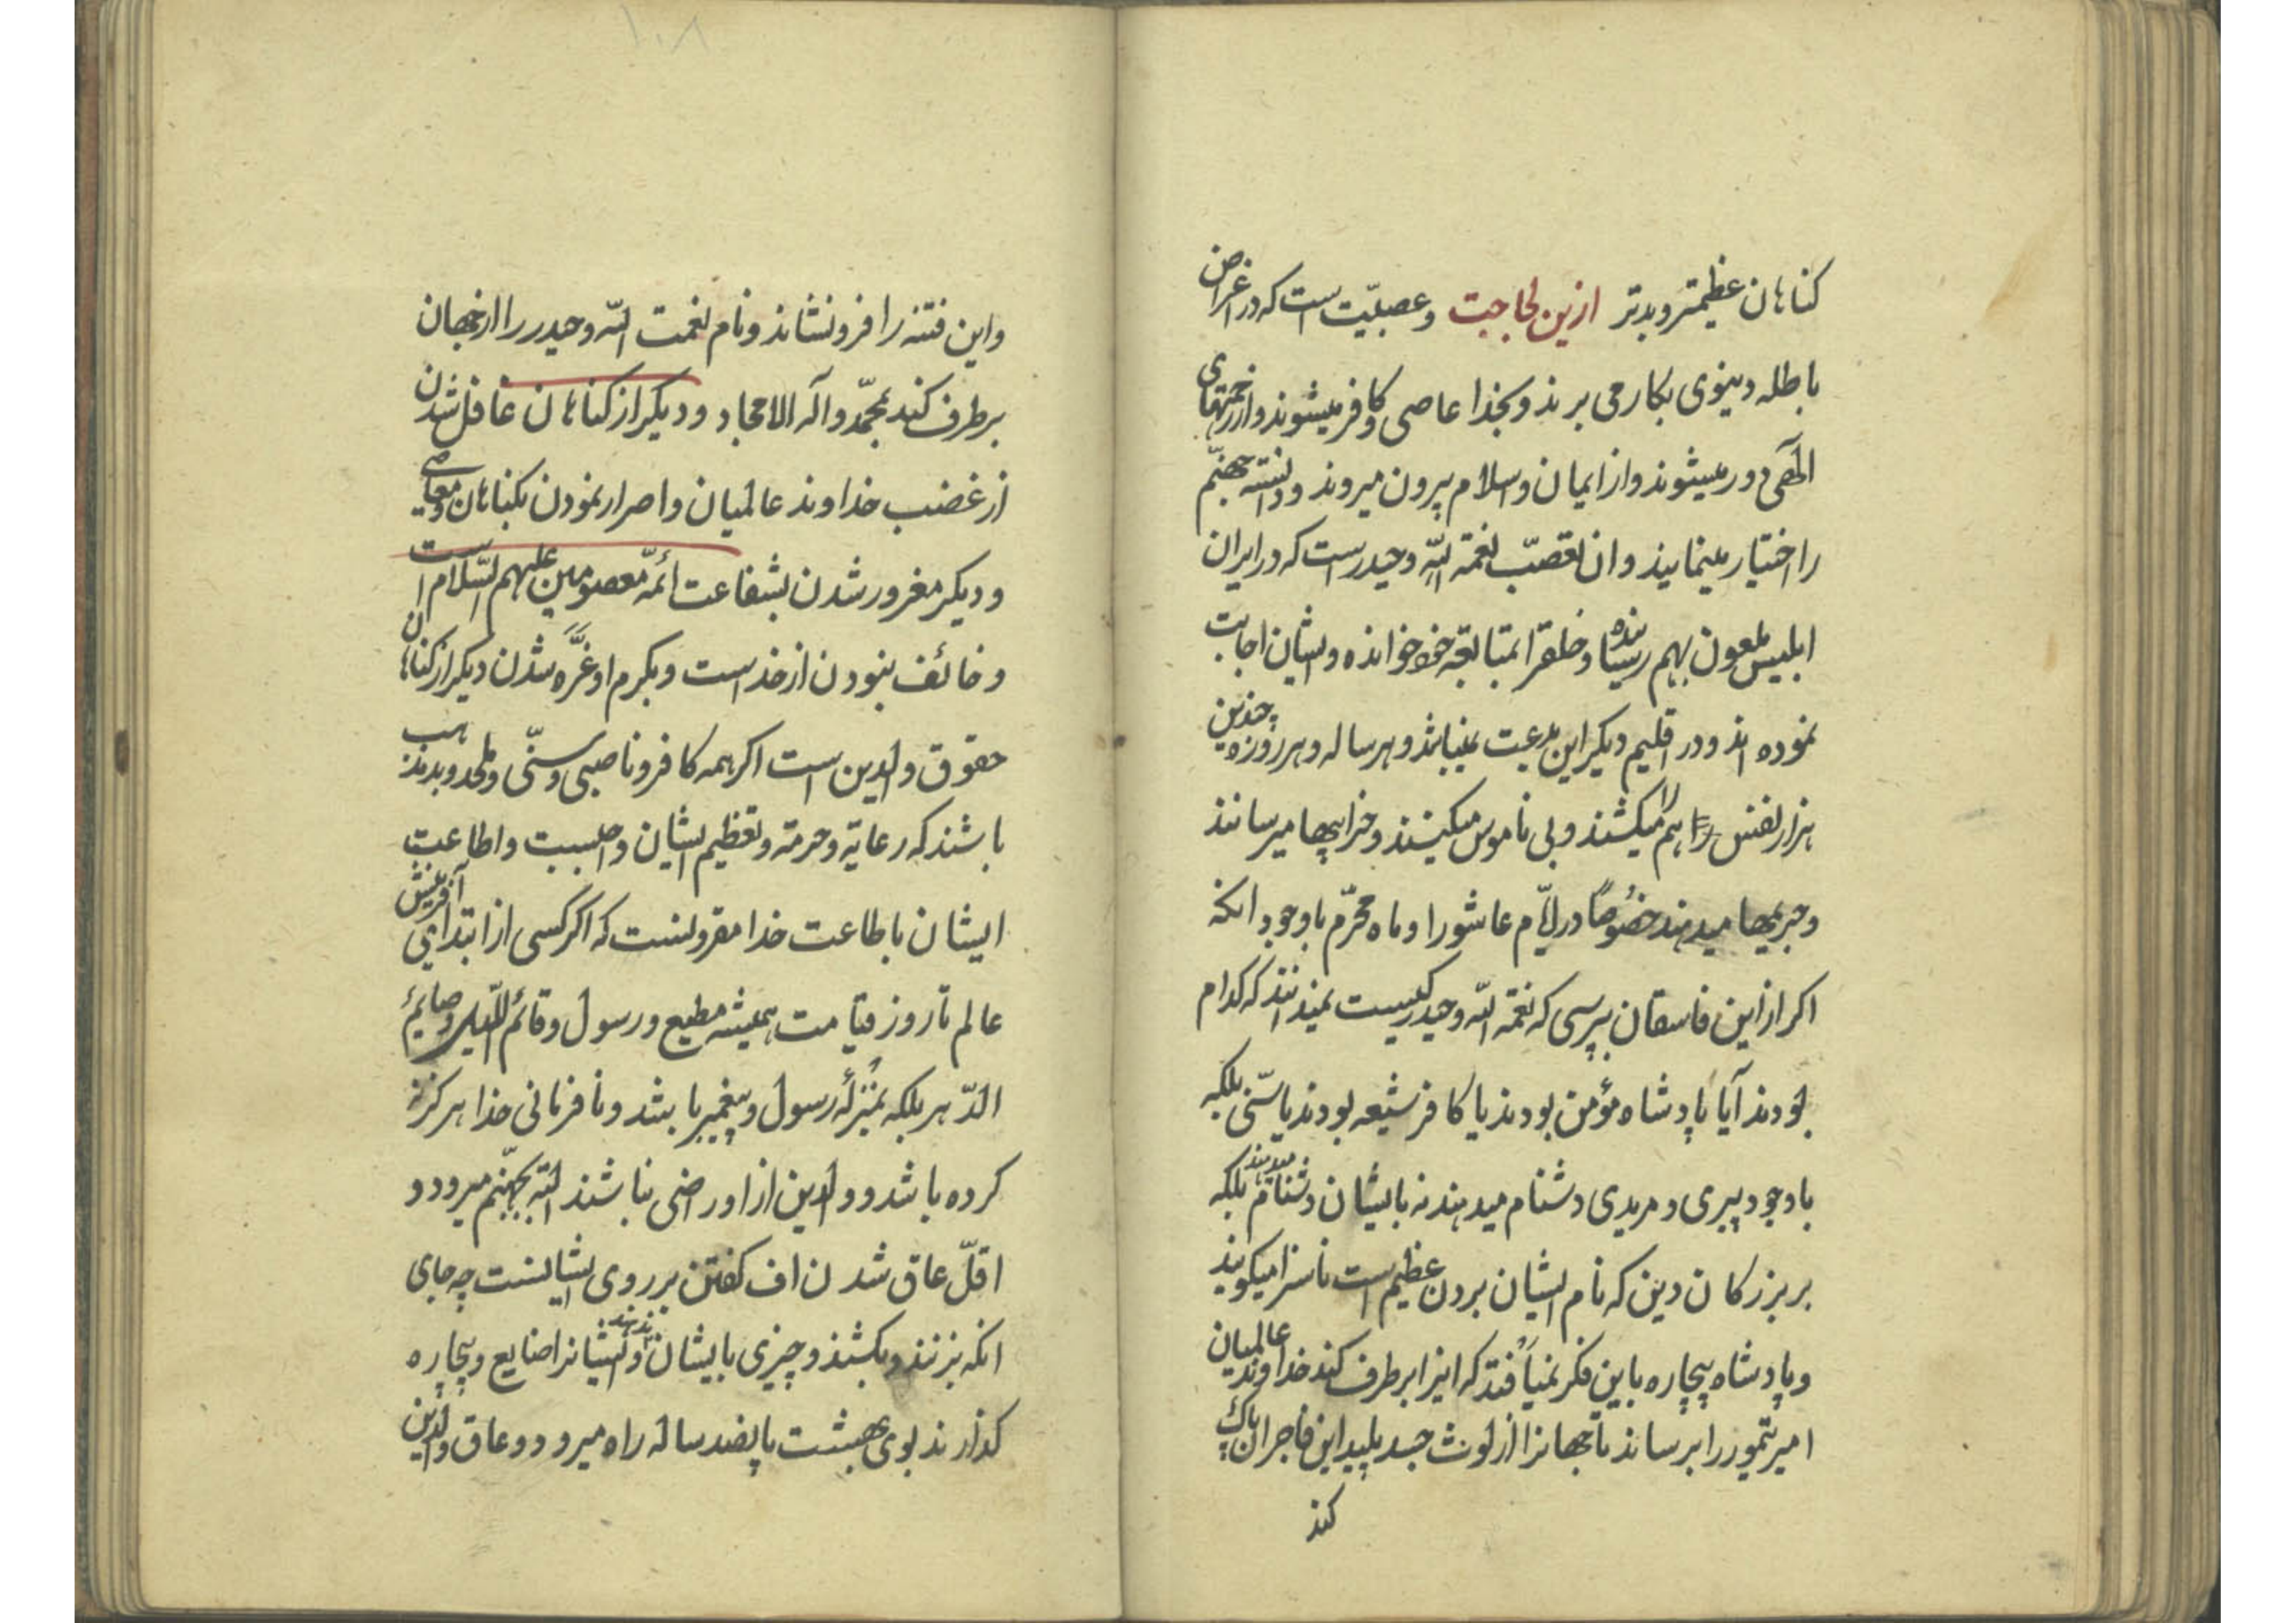 کناهان عظیمتر و بدتر ازین لجاجت و عصبیّت است که در اغراض
باطله دینوی بکار می برند و بخدا عاصی و کافر میشوند و از رحمتهای
الٓهی دور میشوند و از ایمان و اسلام بیرون میروند و دانسته جهنّم
را اختیار مینمایند و ان تعصّب نعمة اللّه و حیدرست که در ایران
ابلیس ملعون بهم رسانیده و خلقرا بمتابعة خود خوانده و ایشان اجابت
نموده اند و در اقلیم دیکر این بدعت نمیباشد و هر ساله و هر روزه چندین
هزار نفس را هم میکشند و بی ناموس میکنند و خرابیها میرسانند
و جبریمها میدهند خصُوصًا در ایّام عاشورا و ماه محرّم باوجود انکه
اکر از این فاسقان بپرسی که نعمة اللّه و حیدر کیست نمیدانند که کدام
بودند آیا پادشاه مؤمن بودند یا کافر شیعه بودند یا سنّی بلکه
باوجود پیری و مریدی دشنام میدهند نه بایشان دشنام میدهند بلکه
بر بزرکان دین که نام ایشان بردن عظیم است ناسزا میکویند
و پادشاه بیچاره باین فکر نمیاُفتد که اینرا برطرف کند خداوند عالمیان
امیر تیمور را برساند تا جهانرا از لوث جسد پلید این فاجران پاک
کند
۱۰۸
و این فتنه را فرو نشاند و نام نعمت اللّه و حیدر را از جهان
برطرف کند بمحمّد و آله الامجاد و دیکر از کناهان غافل شدن
از غضب خداوند عالمیان و اصرار نمودن بکناهان و معاصی
و دیکر مغرور شدن بشفاعت ائمّه معصومین علیهم السّلام است
و خائف نبودن از خداست و بکرم او غرَّه شدن دیکر از کناهان
حقوق والدین است اکر همه کافر و ناصبی و سنّی و ملحد و بدمذهب
باشند که رعایة و حرمة و تعظیم ایشان واجبست و اطاعت
ایشان باطاعت خدا مقرونست که اکر کسی از ابتدای آفرینش
عالم تا روز قیامت همیشه مطیع و رسول و قائم اللّیل و صایم
الدّهر بلکه بمنُزلهٔ رسول و پیغمبر باشد و نافرمانی خدا هرکز نه
کرده باشد و والدین از او راضی نباشند البتّه بجهنّم میرود و
اقلّ عاق شدن اف کفتن بر روی ایشانست چه جای
انکه بزنند و بکشند و چیزی بایشان ندهند و ایشانرا ضایع و بیچاره
کذارند بوی بهشت پانصد ساله راه میرود و عاق والدین